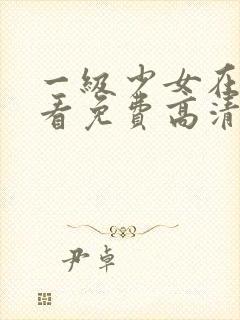 一级少女在
看免费高清
尹卓